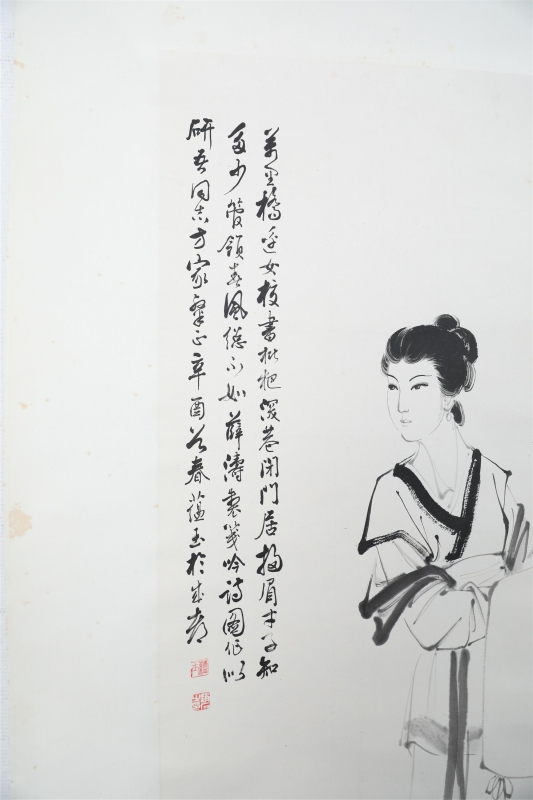 萬里橋邊女校書枇杷深巷閉門居掃眉才子知
多少管領春風總不如薛濤製箋吟詩圖作似
研吾同志方家粲正辛酉之春蘊玉於成都